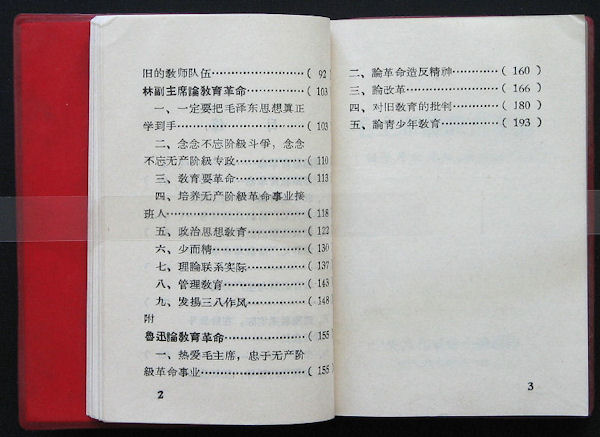 旧的敎师队伍……………………( 92 )
林副主席論敎育革命……………( 103
一、一定要把毛泽东思想眞正
学到手……………………………( 103
二、念念不忘阶級斗爭，念念
不忘无产阶級专政………………( 110
三、敎育要革命…………………( 113
四、培养无产阶級革命事业接
班人………………………………( 118
五、政治思想敎育………………( 122
六、少而精………………………( 130
七、理論联系实际………………( 137
八、管理敎育……………………( 143
九、发揚三八作风………………( 148
附
魯迅論敎育革命…………………( 155
一、热爱毛主席，忠于无产阶
級革命事业………………………( 155
2
二、論革命造反精神……………( 160 )
三、論改革………………………( 166 )
四、对旧敎育的批判……………( 180 )
五、論靑少年敎育………………( 193 )
3